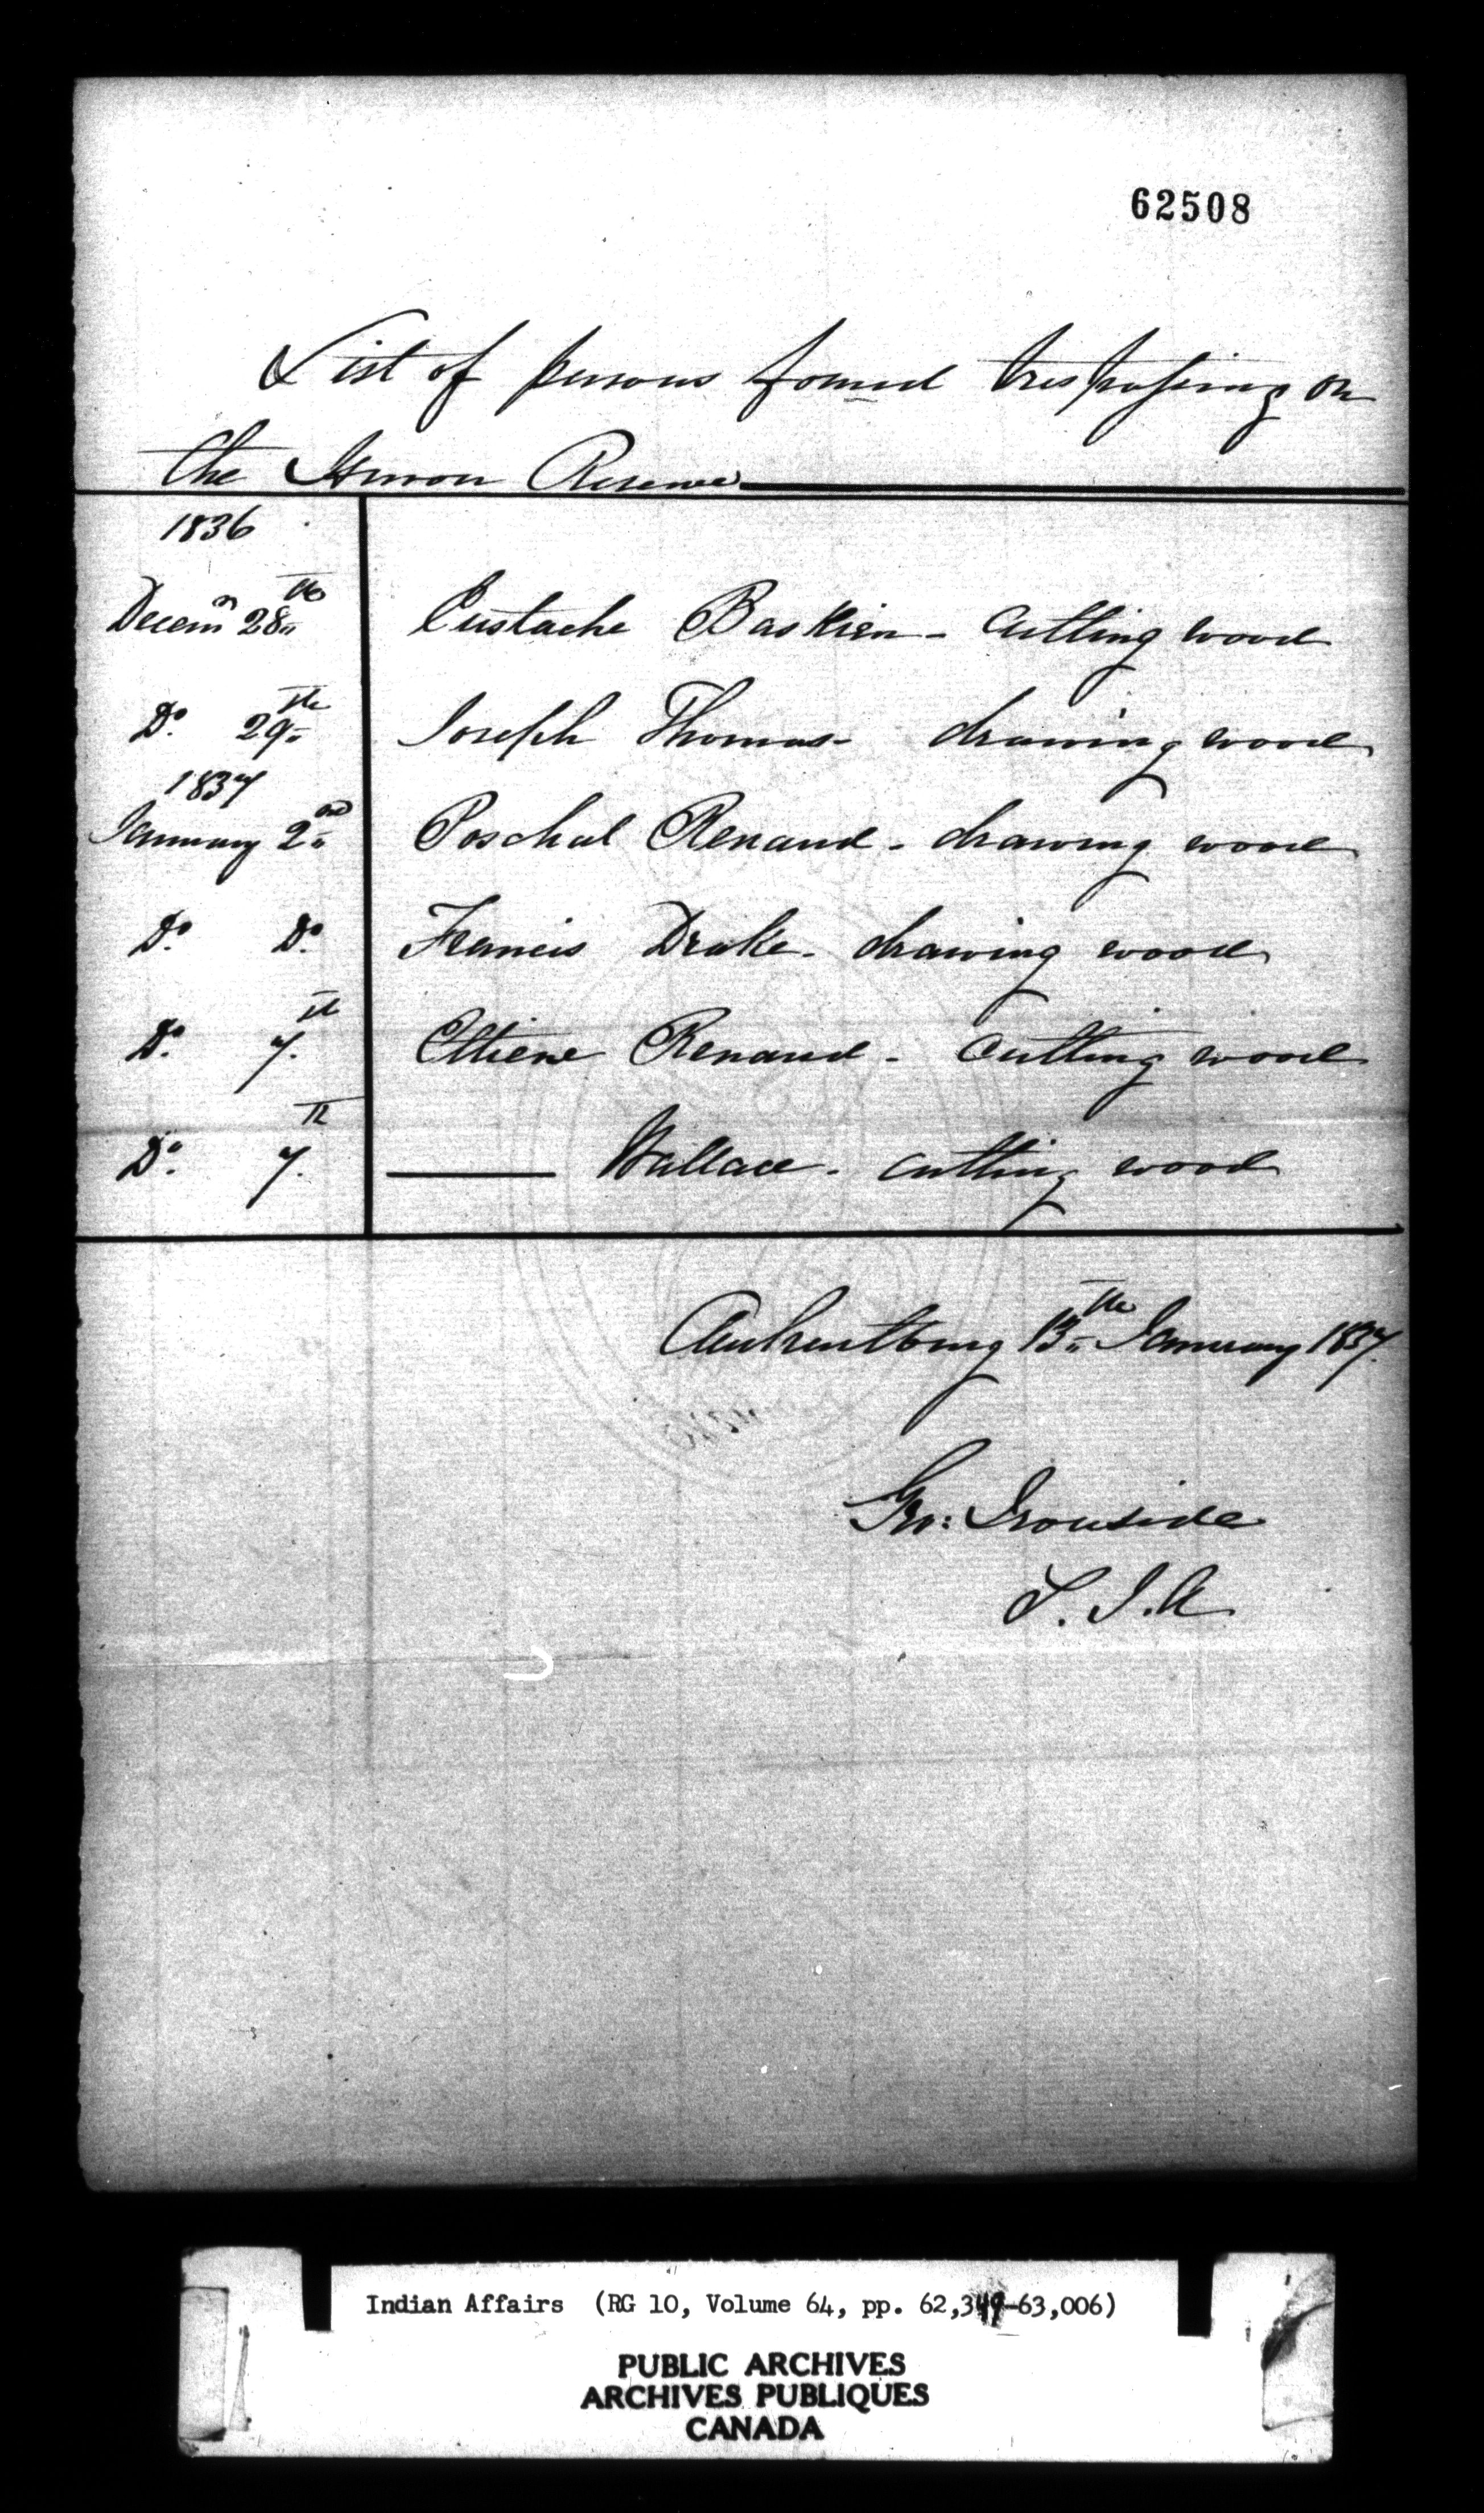 62508
List of persons found trespassing on
the Huron Reserve
1836
Decemr 28th Eustache Baskien - Cutting wood
Do. 29th Joseph Thomas - drawing wood
1837
January 2nd Poschal Renaud - drawing wood
Do. Do. Francis Drake - drawing wood
Do. 7th Ettiene Renaud - Cutting wood
Do. 7th Wallace - cutting wood
13th January 1837.
Geo: Ironside
S. I. A
Indian Affairs (RG 10, Volume 64, pp. 62,349-63,006)
PUBLIC ARCHIVES
ARCHIVES PUBLIQUES
CANADA